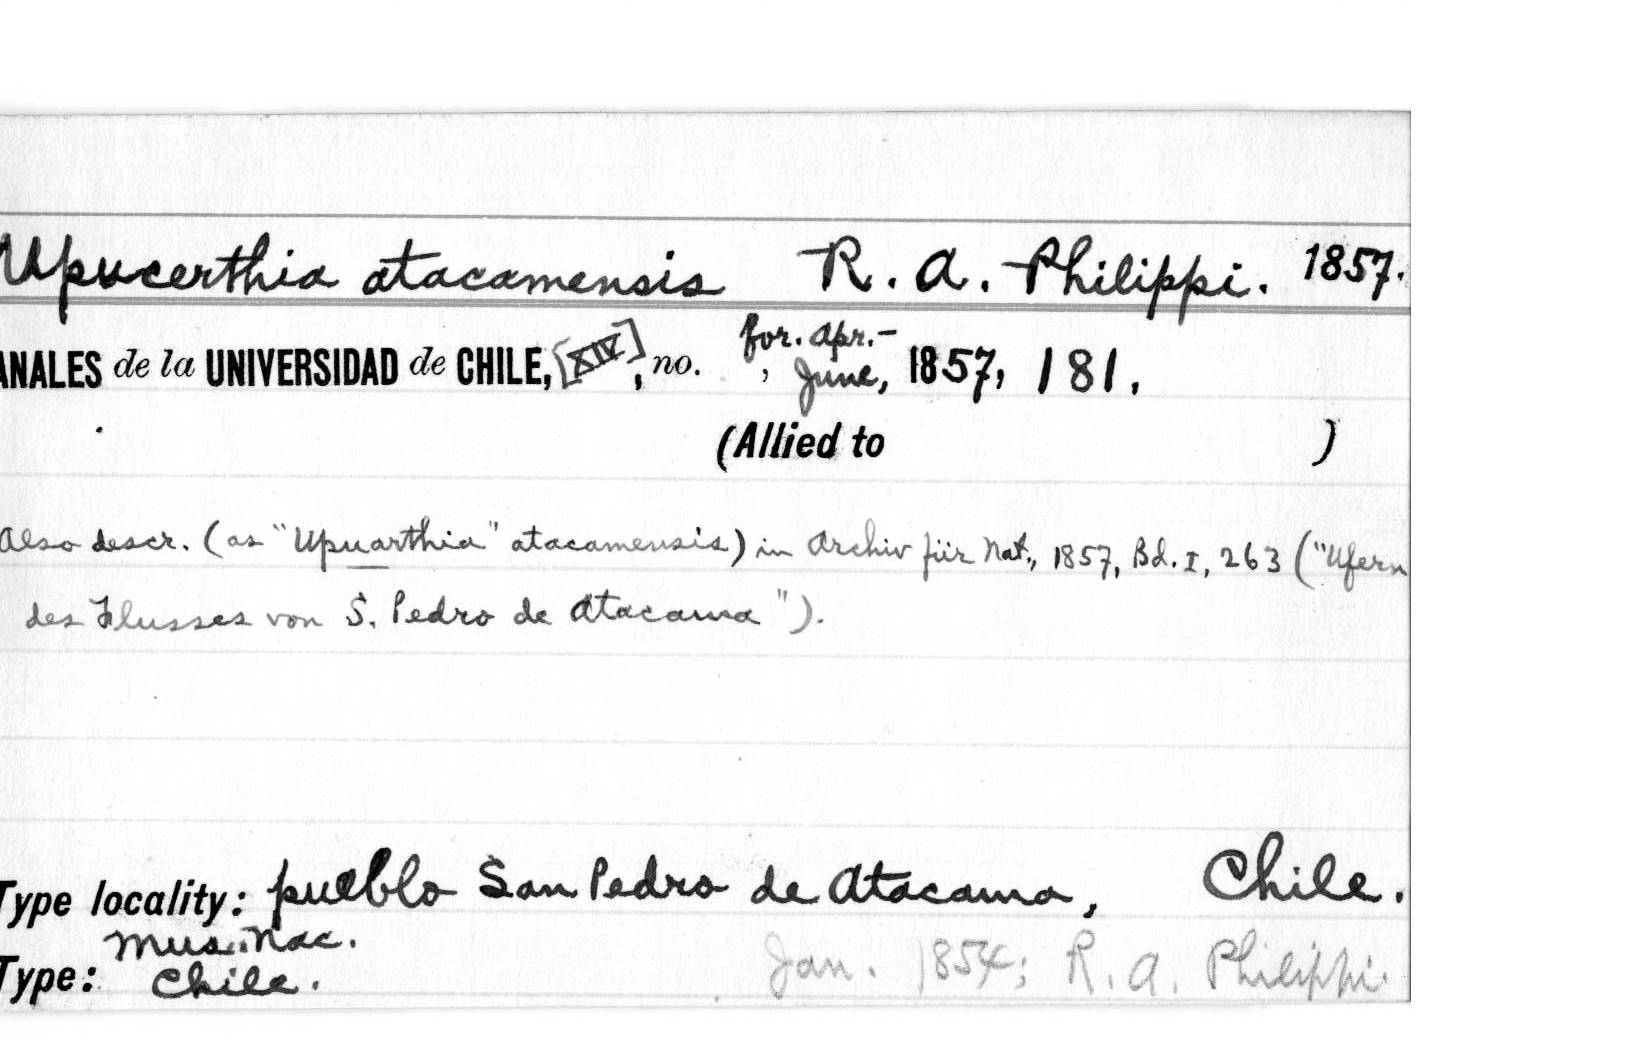 Upucerthia atacamensis R. A. Philippi. 1857.
ANALES de la UNIVERSIDAD de CHILE, [XIV], no. , for. Apr.- June, 1857, 181.
(Allied to )
Also descr. (as "Upuarthia" atacamensis) in Archiv für Nat., 1857, Bd. I, 263 ("Ufern
des Flusses von S. Pedro de Atacama").
Type locality: pueblo San Pedro de Atacama, Chile.
Type: Mus. Nac. Chile.
Jan. 1854; R. A. Philippi.